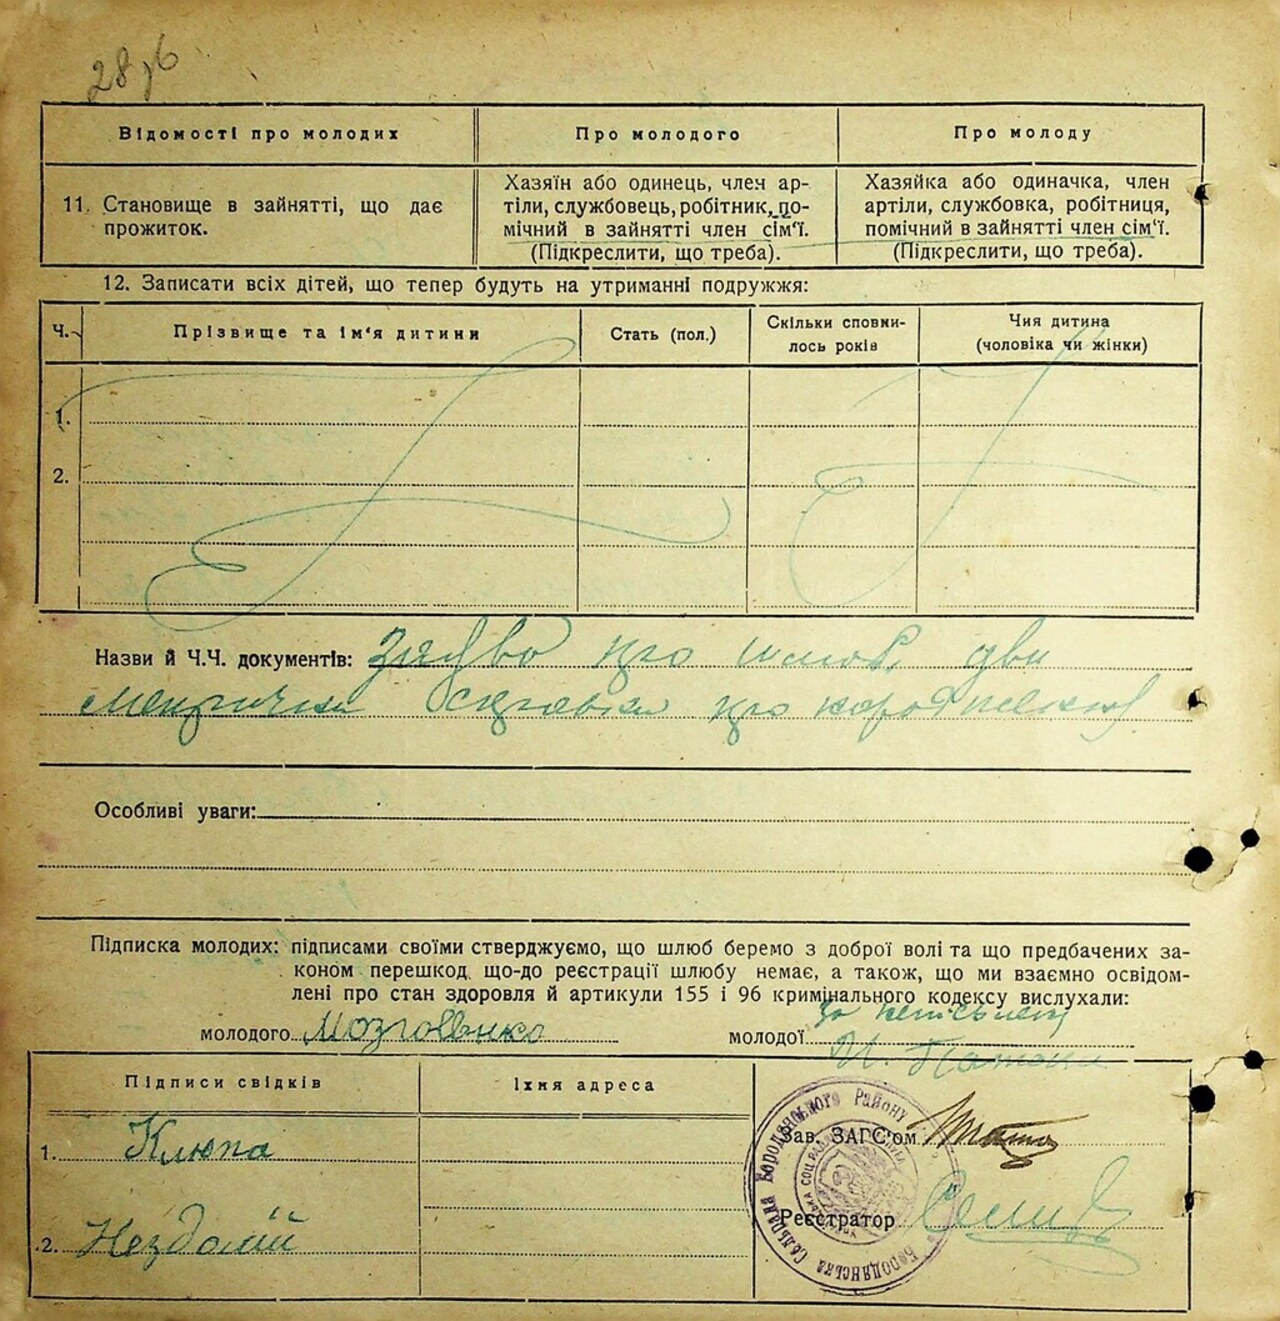 28,6
Відомості про молодих
Про молодого
Про молоду
11. Становище в зайнятті, що дає
прожиток.
Хазяїн або одинець, член ар-
тіли, службовець, робітник, по-
мічний в зайнятті член сім'ї.
(Підкреслити, що треба).
Хазяйка або одиначка, член
артіли, службовка, робітниця,
помічний в зайнятті член сім'ї.
(Підкреслити, що треба).
12. Записати всіх дітей, що тепер будуть на утриманні подружжя:
Ч.
Прізвище та ім'я дитини
Стать (пол.)
Скільки сповни-
лось років
Чия дитина
(чоловіка чи жінки)
1.
2.
Назви й Ч.Ч. документів: Заява про шлюб, дві
метрични про народження
Особливі уваги:
Підписка молодих: підписами своїми стверджуємо, що шлюб беремо з доброї волі та що предбачених за-
коном перешкод, що-до реєстрації шлюбу немає, а також, що ми взаємно освідом-
лені про стан здоровля й артикули 155 і 96 кримінального кодексу вислухали:
молодого Мозговенко
молодої За
Підписи свідків
Їхня адреса
1. Клюпа
2. Нездолій
Зав. ЗАГС'ом
Реєстратор
Бородянська Сельрада Бородянського Району